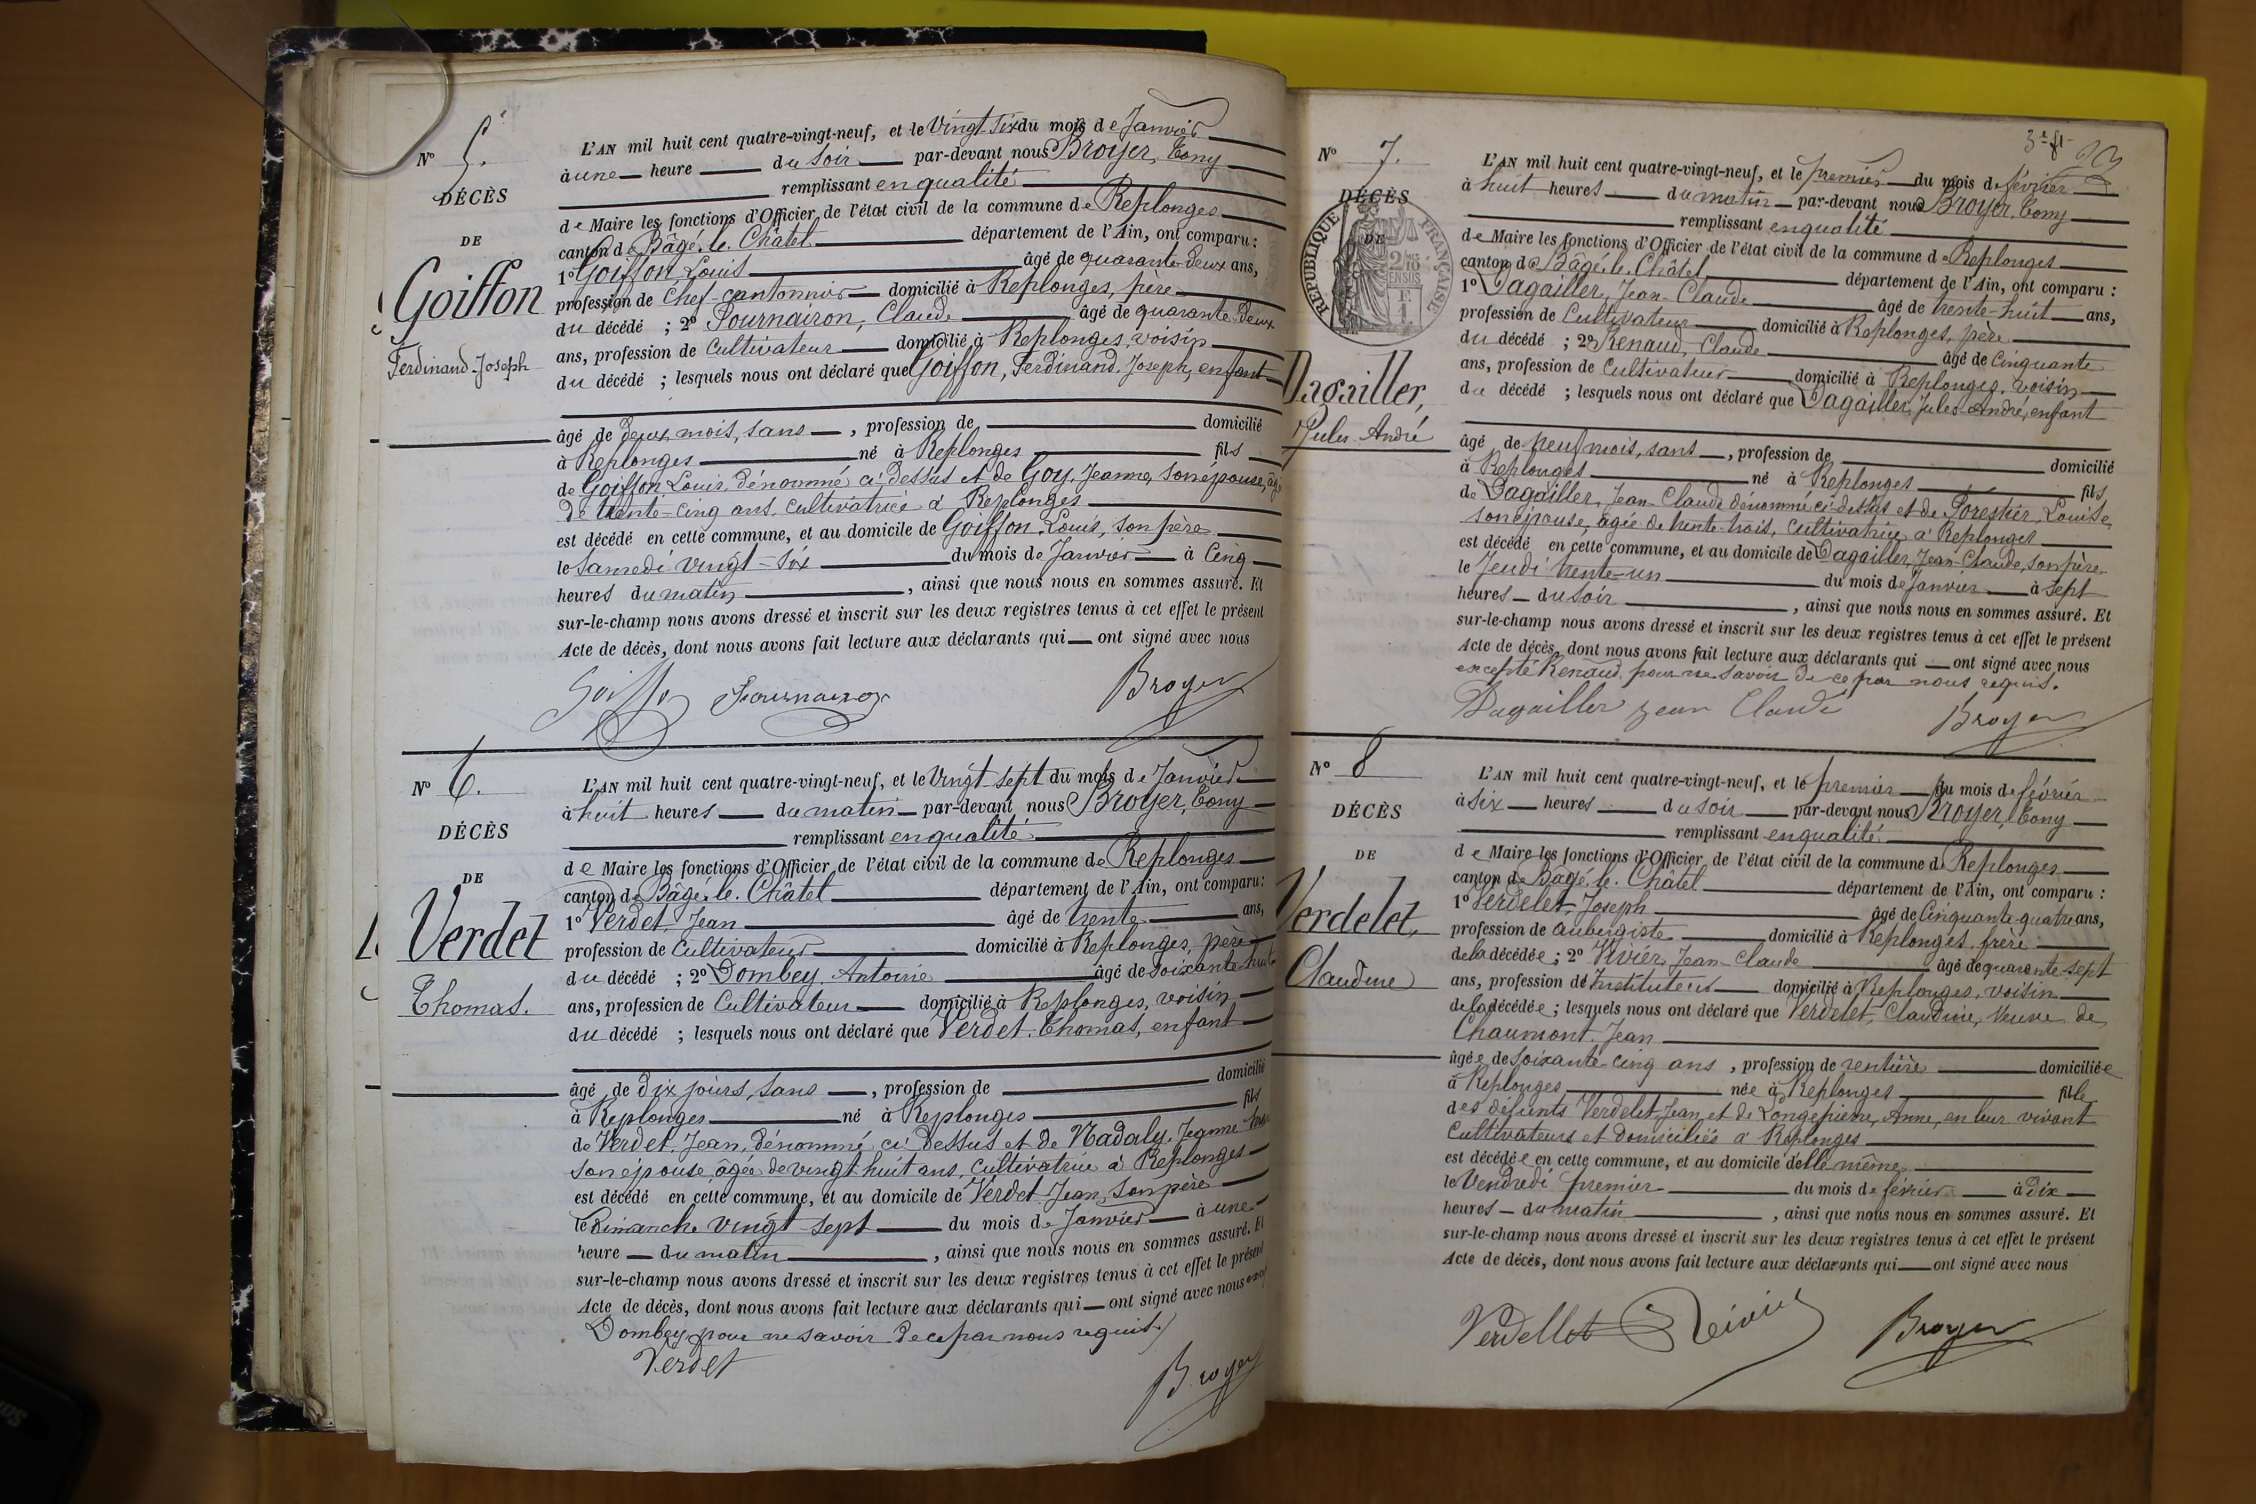 N° 5.
DÉCÈS
DE
Goiffon
Ferdinand-Joseph
L'AN mil huit cent quatre-vingt-neuf, et le Vingt six du mois de Janvier
à une heure du Soir par-devant nous Broyer, Tony
remplissant en qualité
de Maire les fonctions d'Officier de l'état civil de la commune de Replonges
canton de Bâgé-le-Châtel département de l'Ain, ont comparu :
1° Goiffon Louis âgé de quarante deux ans,
profession de Chef-cantonnier domicilié à Replonges, père
du décédé ; 2° Fournairon, Claude âgé de quarante deux
ans, profession de Cultivateur domicilié à Replonges, voisin
du décédé ; lesquels nous ont déclaré que Goiffon, Ferdinand Joseph, enfant
âgé de deux mois, sans , profession de domicilié
à Replonges né à Replonges fils
de Goiffon Louis, dénommé ci-dessus et de Goy, Jeanne, son épouse,
de trente-cinq ans, cultivatrice à Replonges
est décédé en cette commune, et au domicile de Goiffon Louis, son père
le Samedi vingt-six du mois de Janvier à Cinq
heures du matin , ainsi que nous nous en sommes assuré. Et
sur-le-champ nous avons dressé et inscrit sur les deux registres tenus à cet effet le présent
Acte de décès, dont nous avons fait lecture aux déclarants qui ont signé avec nous
Goiffon Fournairon Broyer
N° 6.
DÉCÈS
DE
Verdet
Thomas.
L'AN mil huit cent quatre-vingt-neuf, et le Vingt sept du mois de Janvier
à huit heures du matin par-devant nous Broyer, Tony
remplissant en qualité
de Maire les fonctions d'Officier de l'état civil de la commune de Replonges
canton de Bâgé-le-Châtel département de l'Ain, ont comparu :
1° Verdet Jean âgé de trente ans,
profession de Cultivateur domicilié à Replonges, père
du décédé ; 2° Dombey Antoine âgé de soixante-huit
ans, profession de Cultivateur domicilié à Replonges, voisin
du décédé ; lesquels nous ont déclaré que Verdet Thomas, enfant
âgé de dix jours, sans , profession de domicilié
à Replonges né à Replonges fils
de Verdet, Jean, dénommé ci-dessus et de Nadaly, Jeanne
son épouse, âgée de vingt huit ans, cultivatrice à Replonges
est décédé en cette commune, et au domicile de Verdet Jean, son père
le Dimanche vingt-sept du mois de Janvier à une
heure du matin , ainsi que nous nous en sommes assuré. Et
sur-le-champ nous avons dressé et inscrit sur les deux registres tenus à cet effet le présent
Acte de décès, dont nous avons fait lecture aux déclarants qui ont signé avec nous
Dombey, pour ne savoir de ce par nous requit.
Verdet
Broyer
3e ft
N° 7.
DÉCÈS
DE
RÉPUBLIQUE FRANÇAISE
Dagailler,
Jules André
L'AN mil huit cent quatre-vingt-neuf, et le premier du mois de février
à huit heures du matin par-devant nous Broyer, Tony
remplissant en qualité
de Maire les fonctions d'Officier de l'état civil de la commune de Replonges
canton de Bâgé-le-Châtel département de l'Ain, ont comparu :
1° Dagailler, Jean-Claude âgé de trente-huit ans,
profession de Cultivateur domicilié à Replonges, père
du décédé ; 2° Renaud, Claude âgé de Cinquante
ans, profession de Cultivateur domicilié à Replonges, voisin
du décédé ; lesquels nous ont déclaré que Dagailler, Jules-André, enfant
âgé de neuf mois, sans , profession de domicilié
à Replonges né à Replonges fils
de Dagailler, Jean-Claude dénommé ci-dessus et de Forestier, Louise,
son épouse, âgée de trente-trois, cultivatrice à Replonges
est décédé en cette commune, et au domicile de Dagailler Jean-Claude, son père
le Jeudi trente-un du mois de Janvier à sept
heures du soir , ainsi que nous nous en sommes assuré. Et
sur-le-champ nous avons dressé et inscrit sur les deux registres tenus à cet effet le présent
Acte de décès, dont nous avons fait lecture aux déclarants qui ont signé avec nous
excepté Renaud pour ne savoir de ce par nous requis.
Dagailler Jean Claude Broyer
N° 8
DÉCÈS
DE
Verdelet,
Claudine
L'AN mil huit cent quatre-vingt-neuf, et le premier du mois de février
à six heures du soir par-devant nous Broyer, Tony
remplissant en qualité
de Maire les fonctions d'Officier de l'état civil de la commune de Replonges
canton de Bâgé-le-Châtel département de l'Ain, ont comparu :
1° Verdelet, Joseph âgé de Cinquante-quatre ans,
profession de aubergiste domicilié à Replonges, frère
de la décédée ; 2° Vivier, Jean-Claude âgé de quarante-sept
ans, profession de Instituteur domicilié à Replonges, voisin
de la décédée ; lesquels nous ont déclaré que Verdelet, Claudine, Veuve de
Chaumont Jean
âgée de Soixante-cinq ans , profession de rentière domiciliée
à Replonges née à Replonges fille
des défunts Verdelet, Jean et de Longepierre, Anne, en leur vivant
Cultivateurs et domiciliés à Replonges
est décédée en cette commune, et au domicile d'elle même
le Vendredi premier du mois de février à dix
heures du matin , ainsi que nous nous en sommes assuré. Et
sur-le-champ nous avons dressé et inscrit sur les deux registres tenus à cet effet le présent
Acte de décès, dont nous avons fait lecture aux déclarants qui ont signé avec nous
Verdellet Vivier Broyer